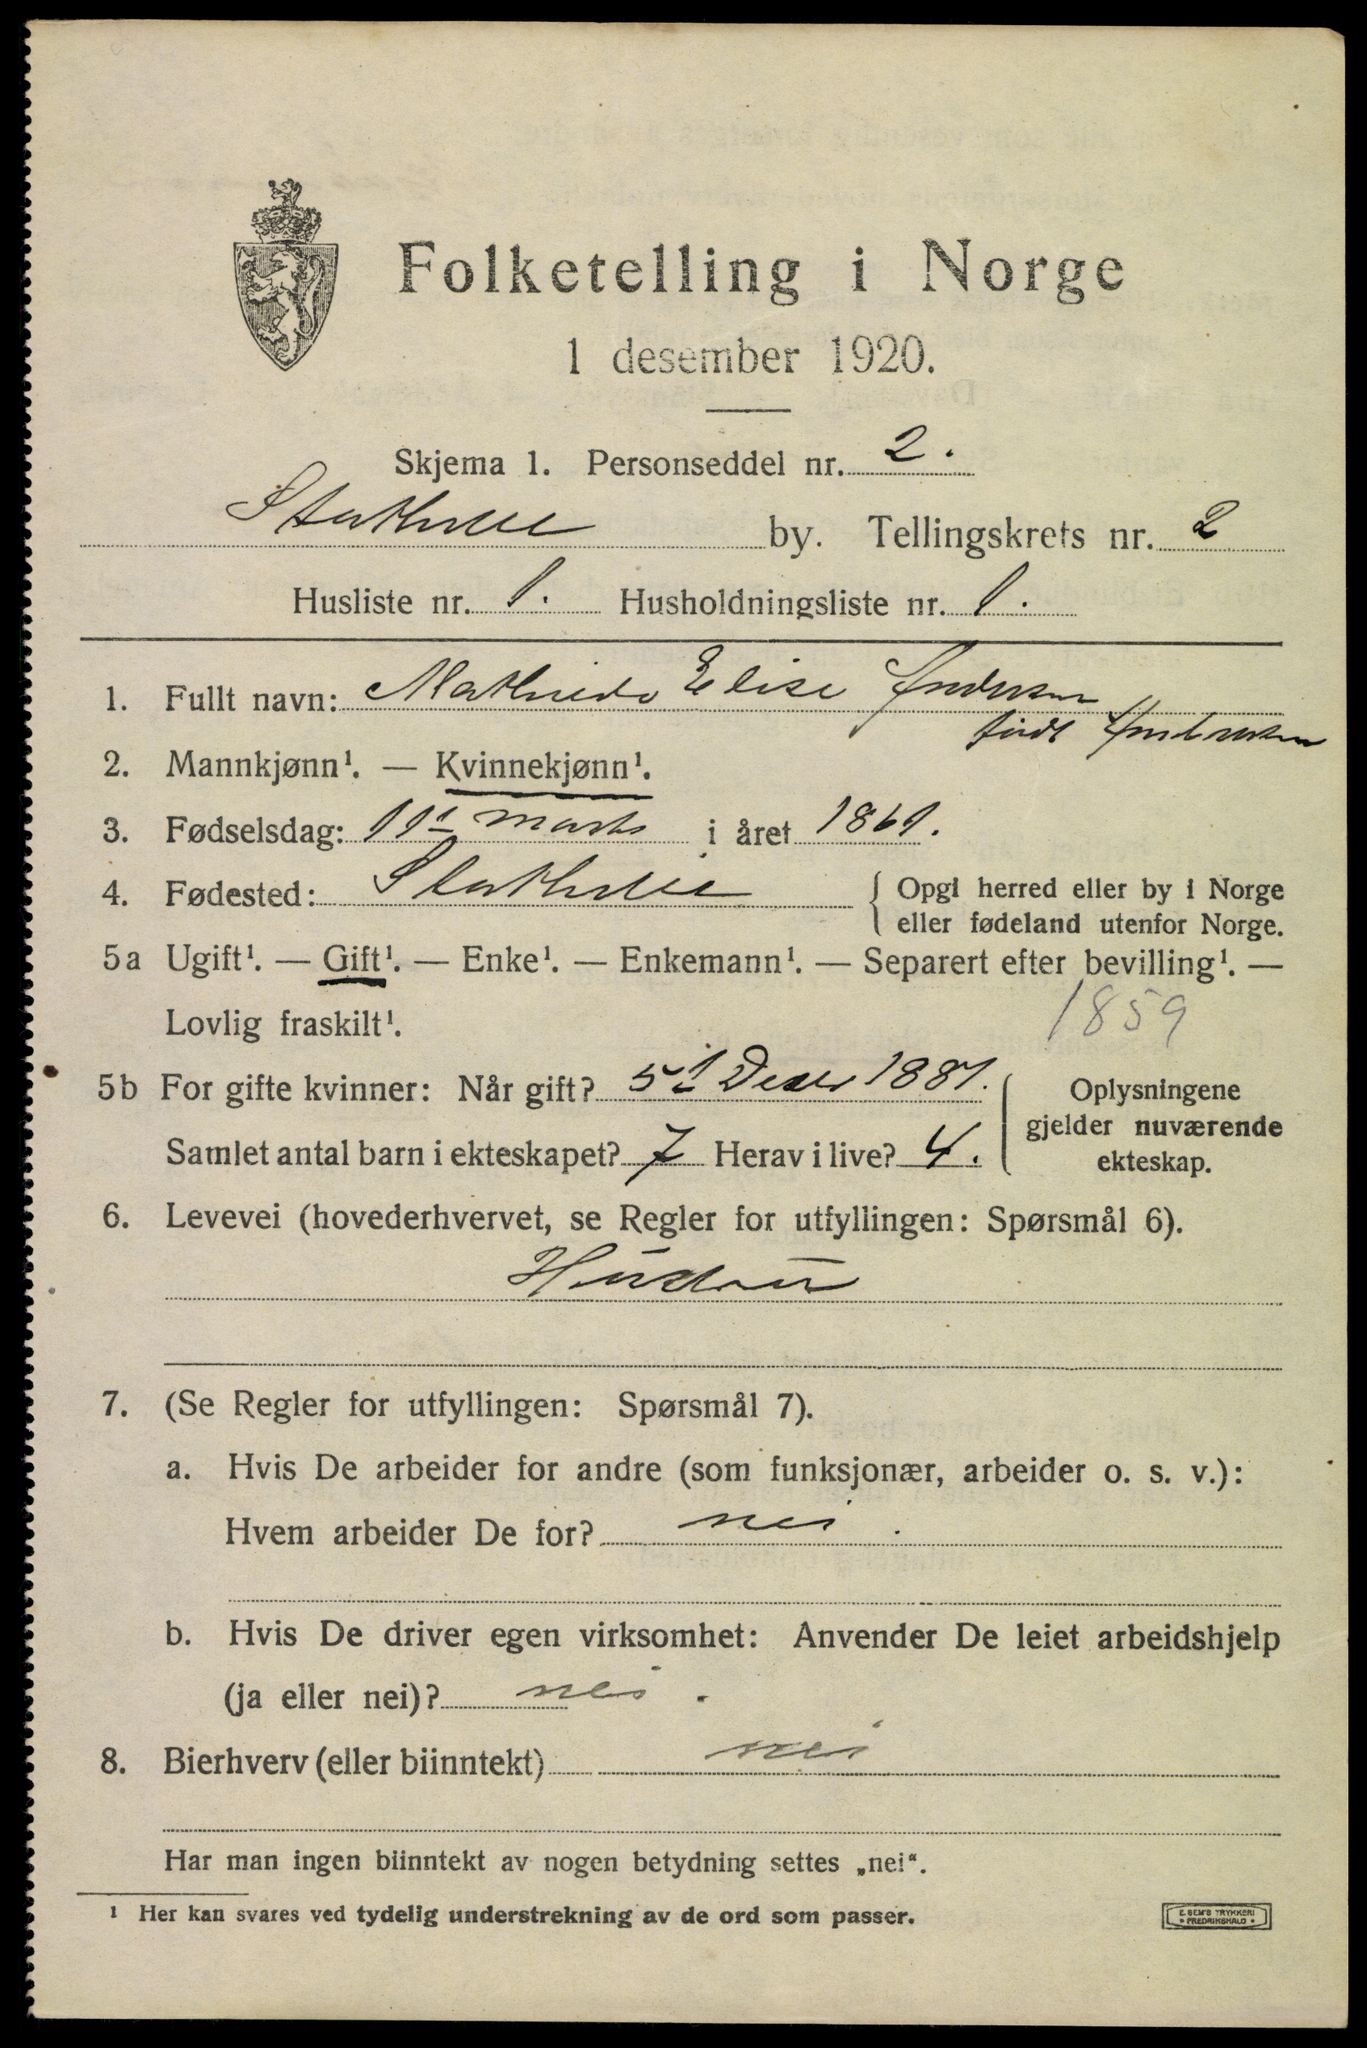 Folketelling i Norge
1 desember 1920.
Skjema 1. Personseddel nr. 2.
Stathelle by. Tellingskrets nr. 2
Husliste nr. 1. Husholdningsliste nr. 1.
1. Fullt navn: Mathilde Elise Andersen
født
2. Mannkjønn¹. — Kvinnekjønn¹.
3. Fødselsdag: 11te marts i året 1861.
4. Fødested: Stathelle { Opgi herred eller by i Norge
eller fødeland utenfor Norge.
5a Ugift¹. — Gift¹. — Enke¹. — Enkemann¹. — Separert efter bevilling¹. —
Lovlig fraskilt¹. 1859
5b For gifte kvinner: Når gift? 5te Desbr 1881. Oplysningene
gjelder nuværende
Samlet antal barn i ekteskapet? 7 Herav i live? 4. ekteskap.
6. Levevei (hovederhvervet, se Regler for utfyllingen: Spørsmål 6).
Hustru
7. (Se Regler for utfyllingen: Spørsmål 7).
a. Hvis De arbeider for andre (som funksjonær, arbeider o. s. v.):
Hvem arbeider De for? nei.
b. Hvis De driver egen virksomhet: Anvender De leiet arbeidshjelp
(ja eller nei)? nei.
8. Bierhverv (eller biinntekt) nei
Har man ingen biinntekt av nogen betydning settes „nei“.
¹ Her kan svares ved tydelig understrekning av de ord som passer.
E. SEM'S TRYKKERI
• FREDRIKSHALD •